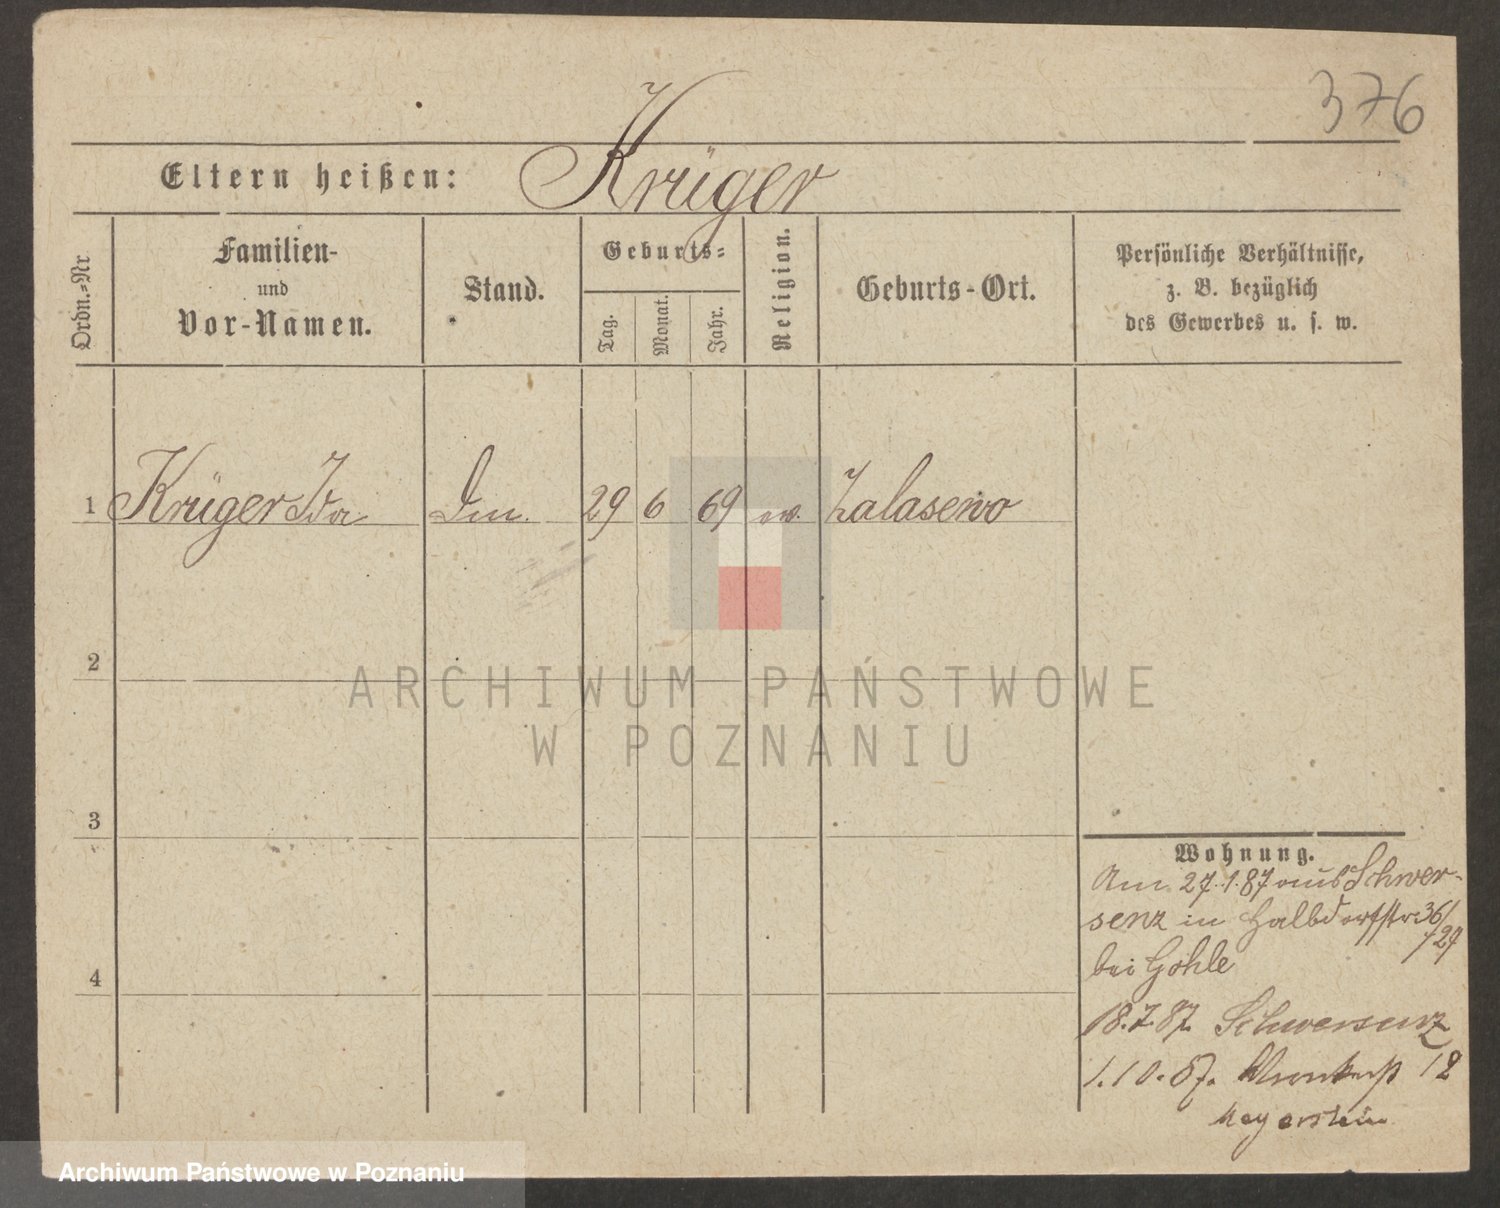 376
Eltern heißen: Krüger
Ordn.=Nr
Familien-
und
Vor-Namen.
Stand.
Geburts=
Tag.
Monat.
Jahr.
Religion.
Geburts-Ort.
Persönliche Verhältnisse,
z. B. bezüglich
des Gewerbes u. s. w.
1 Krüger Ida 29 6 69 ev. Zalasewo
2
ARCHIWUM PAŃSTWOWE
W POZNANIU
3
Wohnung.
Am 27.1.87 aus Schwer-
senz in Halbdorfstr 36/
bei Gohle
4
18.7.87 Schwersenz
1.10.87. 12
Meyerstein
Archiwum Państwowe w Poznaniu